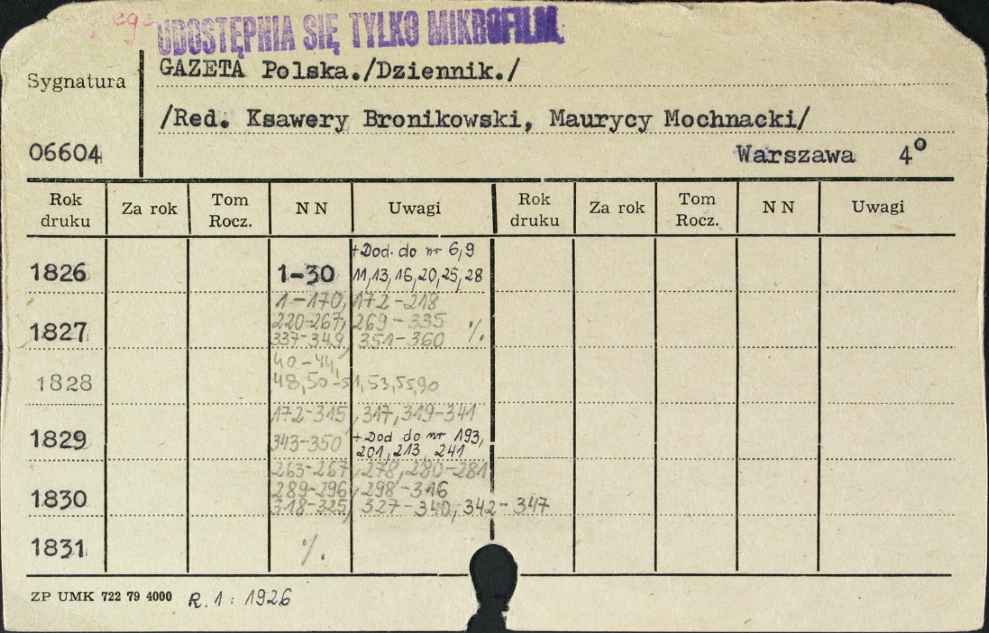 UDOSTĘPNIA SIĘ TYLKO MIKROFILM.
Sygnatura
GAZETA Polska./Dziennik./
/Red. Ksawery Bronikowski, Maurycy Mochnacki/
06604
Warszawa 4°
Rok druku Za rok Tom Rocz. NN Uwagi Rok druku Za rok Tom Rocz. NN Uwagi
+Dod. do nr 6,9
1826 1-30 11,13,16,20,25,28
1-170, 172-218
1827 220-267, 269-335 ./.
337-349, 351-360
40-44,
1828 48,50-51,53,55,90
172-315, 317, 319-341
1829 343-350 +Dod do nr 193,
201, 213, 241
263-267, 278, 280-281
1830 289-296, 298-316
318-325, 327-340, 342-347
1831 ./.
ZP UMK 722 79 4000 R. 1: 1926